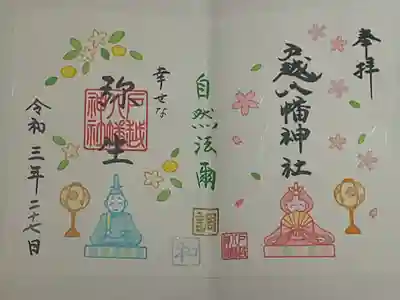 奉拝
戸越八幡神社
自然法爾
調
和
幸せな
弥生
戸越
八幡
神社
令和三年二十七日